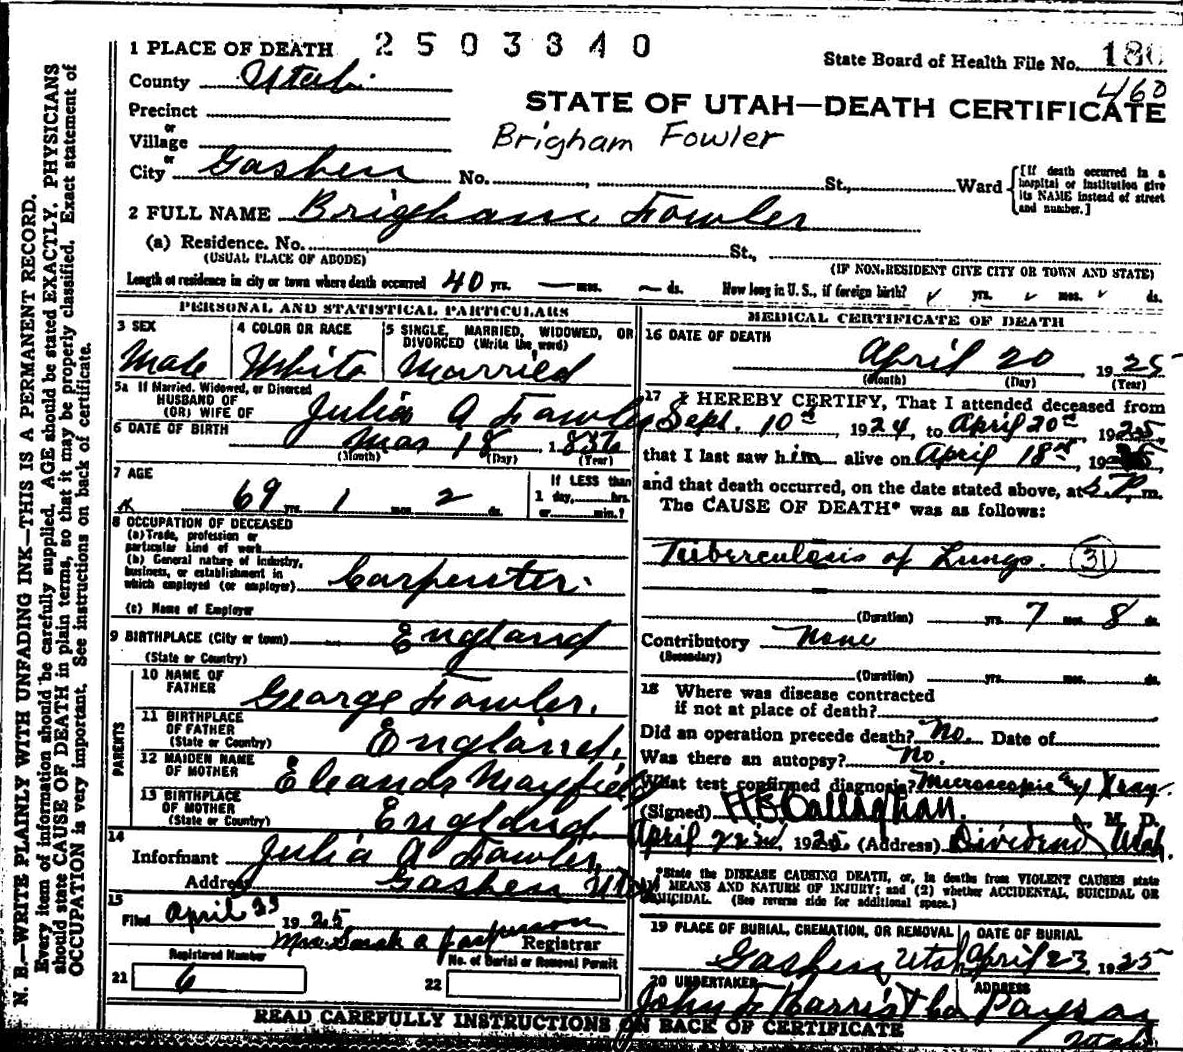 2503340
1 PLACE OF DEATH
State Board of Health File No. 180
County Utah
460
STATE OF UTAH—DEATH CERTIFICATE
Precinct
or
Village
Brigham Fowler
or
City Goshen No. , St., Ward [If death occurred in a hospital or institution give its NAME instead of street and number.]
2 FULL NAME Brigham Fowler
(a) Residence. No. St.,
(USUAL PLACE OF ABODE) (IF NON.RESIDENT GIVE CITY OR TOWN AND STATE)
Length of residence in city or town where death occurred 40 yrs. — mos. ~ ds. How long in U. S., if foreign birth? ✓ yrs. ✓ mos. ✓ ds.
PERSONAL AND STATISTICAL PARTICULARS
3 SEX
Male
4 COLOR OR RACE
White
5 SINGLE, MARRIED, WIDOWED, OR
DIVORCED (Write the word)
Married
5a If Married, Widowed, or Divorced
HUSBAND OF
(OR) WIFE OF Julia A Fowler
6 DATE OF BIRTH Mar 18 1
(Month) (Day) (Year)
7 AGE
69 yrs. 1 mos. 2 ds.
If LESS than
1 day, hrs.
or min.?
8 OCCUPATION OF DECEASED
(a) Trade, profession or
particular kind of work
(b) General nature of industry,
business, or establishment in
which employed (or employer) Carpenter.
(c) Name of Employer
9 BIRTHPLACE (City or town) England
(State or Country)
PARENTS
10 NAME OF
FATHER George Fowler.
11 BIRTHPLACE
OF FATHER
(State or Country) England.
12 MAIDEN NAME
OF MOTHER Eleanor Mayfield
13 BIRTHPLACE
OF MOTHER
(State or Country) England
14
Informant Julia A Fowler
Address Goshen Utah
15
Filed April 23 1925
Mrs. Sarah A Registrar
Registered Number
No. of Burial or Removal Permit
21 6
22
MEDICAL CERTIFICATE OF DEATH
16 DATE OF DEATH
April 20 1925
(Month) (Day) (Year)
17 I HEREBY CERTIFY, That I attended deceased from
Sept. 10th, 1924, to April 20th, 1925,
that I last saw him alive on April 18th, 1925,
and that death occurred, on the date stated above, at P. m.
The CAUSE OF DEATH* was as follows:
Tuberculosis of Lungs. (31)
(Duration) yrs. 7 mos. 8 ds.
Contributory None
(Secondary)
(Duration) yrs. mos. ds.
18 Where was disease contracted
if not at place of death?
Did an operation precede death? No. Date of
Was there an autopsy? No.
What test confirmed diagnosis? Microscopic and Xray.
(Signed) H.B. Callaghan. M. D.
April 22nd, 1925 (Address) Dividend Utah.
*State the DISEASE CAUSING DEATH, or, in deaths from VIOLENT CAUSES state
MEANS AND NATURE OF INJURY; and (2) whether ACCIDENTAL, SUICIDAL OR
HOMICIDAL. (See reverse side for additional space.)
19 PLACE OF BURIAL, CREMATION, OR REMOVAL
Goshen, Utah
DATE OF BURIAL
April 23 1925
20 UNDERTAKER
John F Harris & Co
ADDRESS
Payson
Utah
READ CAREFULLY INSTRUCTIONS ON BACK OF CERTIFICATE
N. B.—WRITE PLAINLY WITH UNFADING INK—THIS IS A PERMANENT RECORD.
Every item of information should be carefully supplied. AGE should be stated EXACTLY. PHYSICIANS
should state CAUSE OF DEATH in plain terms, so that it may be properly classified. Exact statement of
OCCUPATION is very important. See instructions on back of certificate.